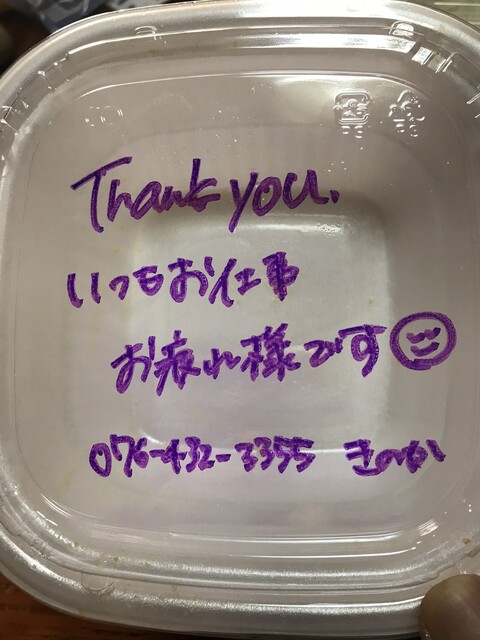 Thank you.
いつもお仕事
お疲れ様です
076-432-3355 きのめい